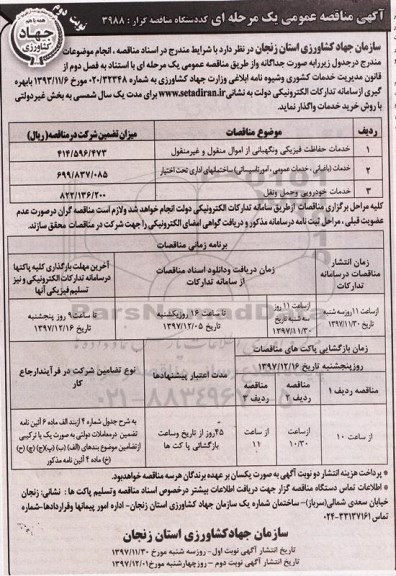 آگهی مناقصه عمومی یک مرحله ای کددستگاه مناقصه گزار : ۳۹۸۸
نوبت دوم
جهاد
کشاورزی
سازمان جهاد کشاورزی استان زنجان در نظر دارد با شرایط مندرج در اسناد مناقصه ، انجام موضوعات
مندرج درجدول زیررابه صورت جداگانه واز طریق مناقصه عمومی یک مرحله ای با استناد به فصل دوم از
قانون مدیریت خدمات کشوری وشیوه نامه ابلاغی وزارت جهاد کشاورزی به شماره ۰۲۰/۳۲۳۴۸ مورخ ۱۳۹۳/۱۱/۶ بابهره
گیری ازسامانه تدارکات الکترونیکی دولت به نشانی www.setadiran.ir برای مدت یک سال شمسی به بخش غیردولتی
با روش خرید خدمات واگذار نماید.
ردیف موضوع مناقصات میزان تضمین شرکت درمناقصه (ریال)
۱ خدمات حفاظت فیزیکی ونگهبانی از اموال منقول و غیرمنقول ۴۱۴/۵۹۶/۴۷۳
۲ خدمات (باغبانی ، خدمات عمومی ، امورتاسیساتی) ساختمانهای اداری تحت اختیار ۶۹۹/۸۳۷/۰۸۵
۳ خدمات خودرویی وحمل ونقل ۸۲۲/۱۳۶/۲۰۰
کلیه مراحل برگزاری مناقصات ازطریق سامانه تدارکات الکترونیکی دولت انجام خواهد شد ولازم است مناقصه گران درصورت عدم
عضویت قبلی ، مراحل ثبت نامه درسامانه مذکور و دریافت گواهی امضای الکترونیکی راجهت شرکت در مناقصات محقق سازند.
برنامه زمانی مناقصات
زمان انتشار مناقصات درسامانه تدارکات
زمان دریافت ودانلود اسناد مناقصات
آخرین مهلت بارگذاری کلیه پاکتها از سامانه تدارکات الکترونیکی و نیز تسلیم فیزیکی آنها
ازساعت ۱۱ روزسه شنبه تاریخ ۱۳۹۷/۱۱/۳۰
ازساعت ۱۱ روز سه شنبه تاریخ ۱۳۹۷/۱۱/۳۰
تا ساعت ۱۶ روزیکشنبه تاریخ ۱۳۹۷/۱۲/۰۵
تا ساعت ۹ روز پنجشنبه تاریخ ۱۳۹۷/۱۲/۱۶
زمان بازگشایی پاکت های مناقصات
روزپنجشنبه تاریخ ۱۳۹۷/۱۲/۱۶
مدت اعتبار پیشنهادها
نوع تضامین شرکت در فرآیندارجاع کار
مناقصه ردیف ۱ مناقصه ردیف ۲ مناقصه ردیف ۳
از ساعت ۱۰ ازساعت ۱۰/۳۰ از ساعت ۱۱
۴۵روز از تاریخ وساعت بازگشائی پا کت ها
به شرح جدول شماره ۴ ازبند الف ماده ۶ آئین نامه
تضمین درمعاملات دولتی به صورت یک یا ترکیبی
ازتضامین موضوع بندهای (الف) (ب) (پ)(ج) (چ) (ح)
(خ) ماده ۴ آئین نامه مذکور
* پرداخت هزینه انتشار دو نوبت آگهی به صورت یکسان بر عهده برندگان هرسه مناقصه خواهدبود.
* اطلاعات تماس دستگاه مناقصه گزار جهت دریافت اطلاعات بیشتر درخصوص اسناد مناقصه وتسلیم پاکت ها : نشانی: زنجان
خیابان سعدی شمالی(سرباز)– ساختمان شماره یک سازمان جهاد کشاورزی استان زنجان– اداره امور پیمانها وقراردادها–شماره
تماس ۳۳۱۳۷۱۶۱-۰۲۴
سازمان جهادکشاورزی استان زنجان
تاریخ انتشار آگهی نوبت اول- روزسه شنبه مورخ ۱۳۹۷/۱۱/۳۰
تاریخ انتشار آگهی نوبت دوم - روزچهارشنبه مورخ ۱۳۹۷/۱۲/۰۱
۰۲۱-۸۸۳۴۹۶۷۰